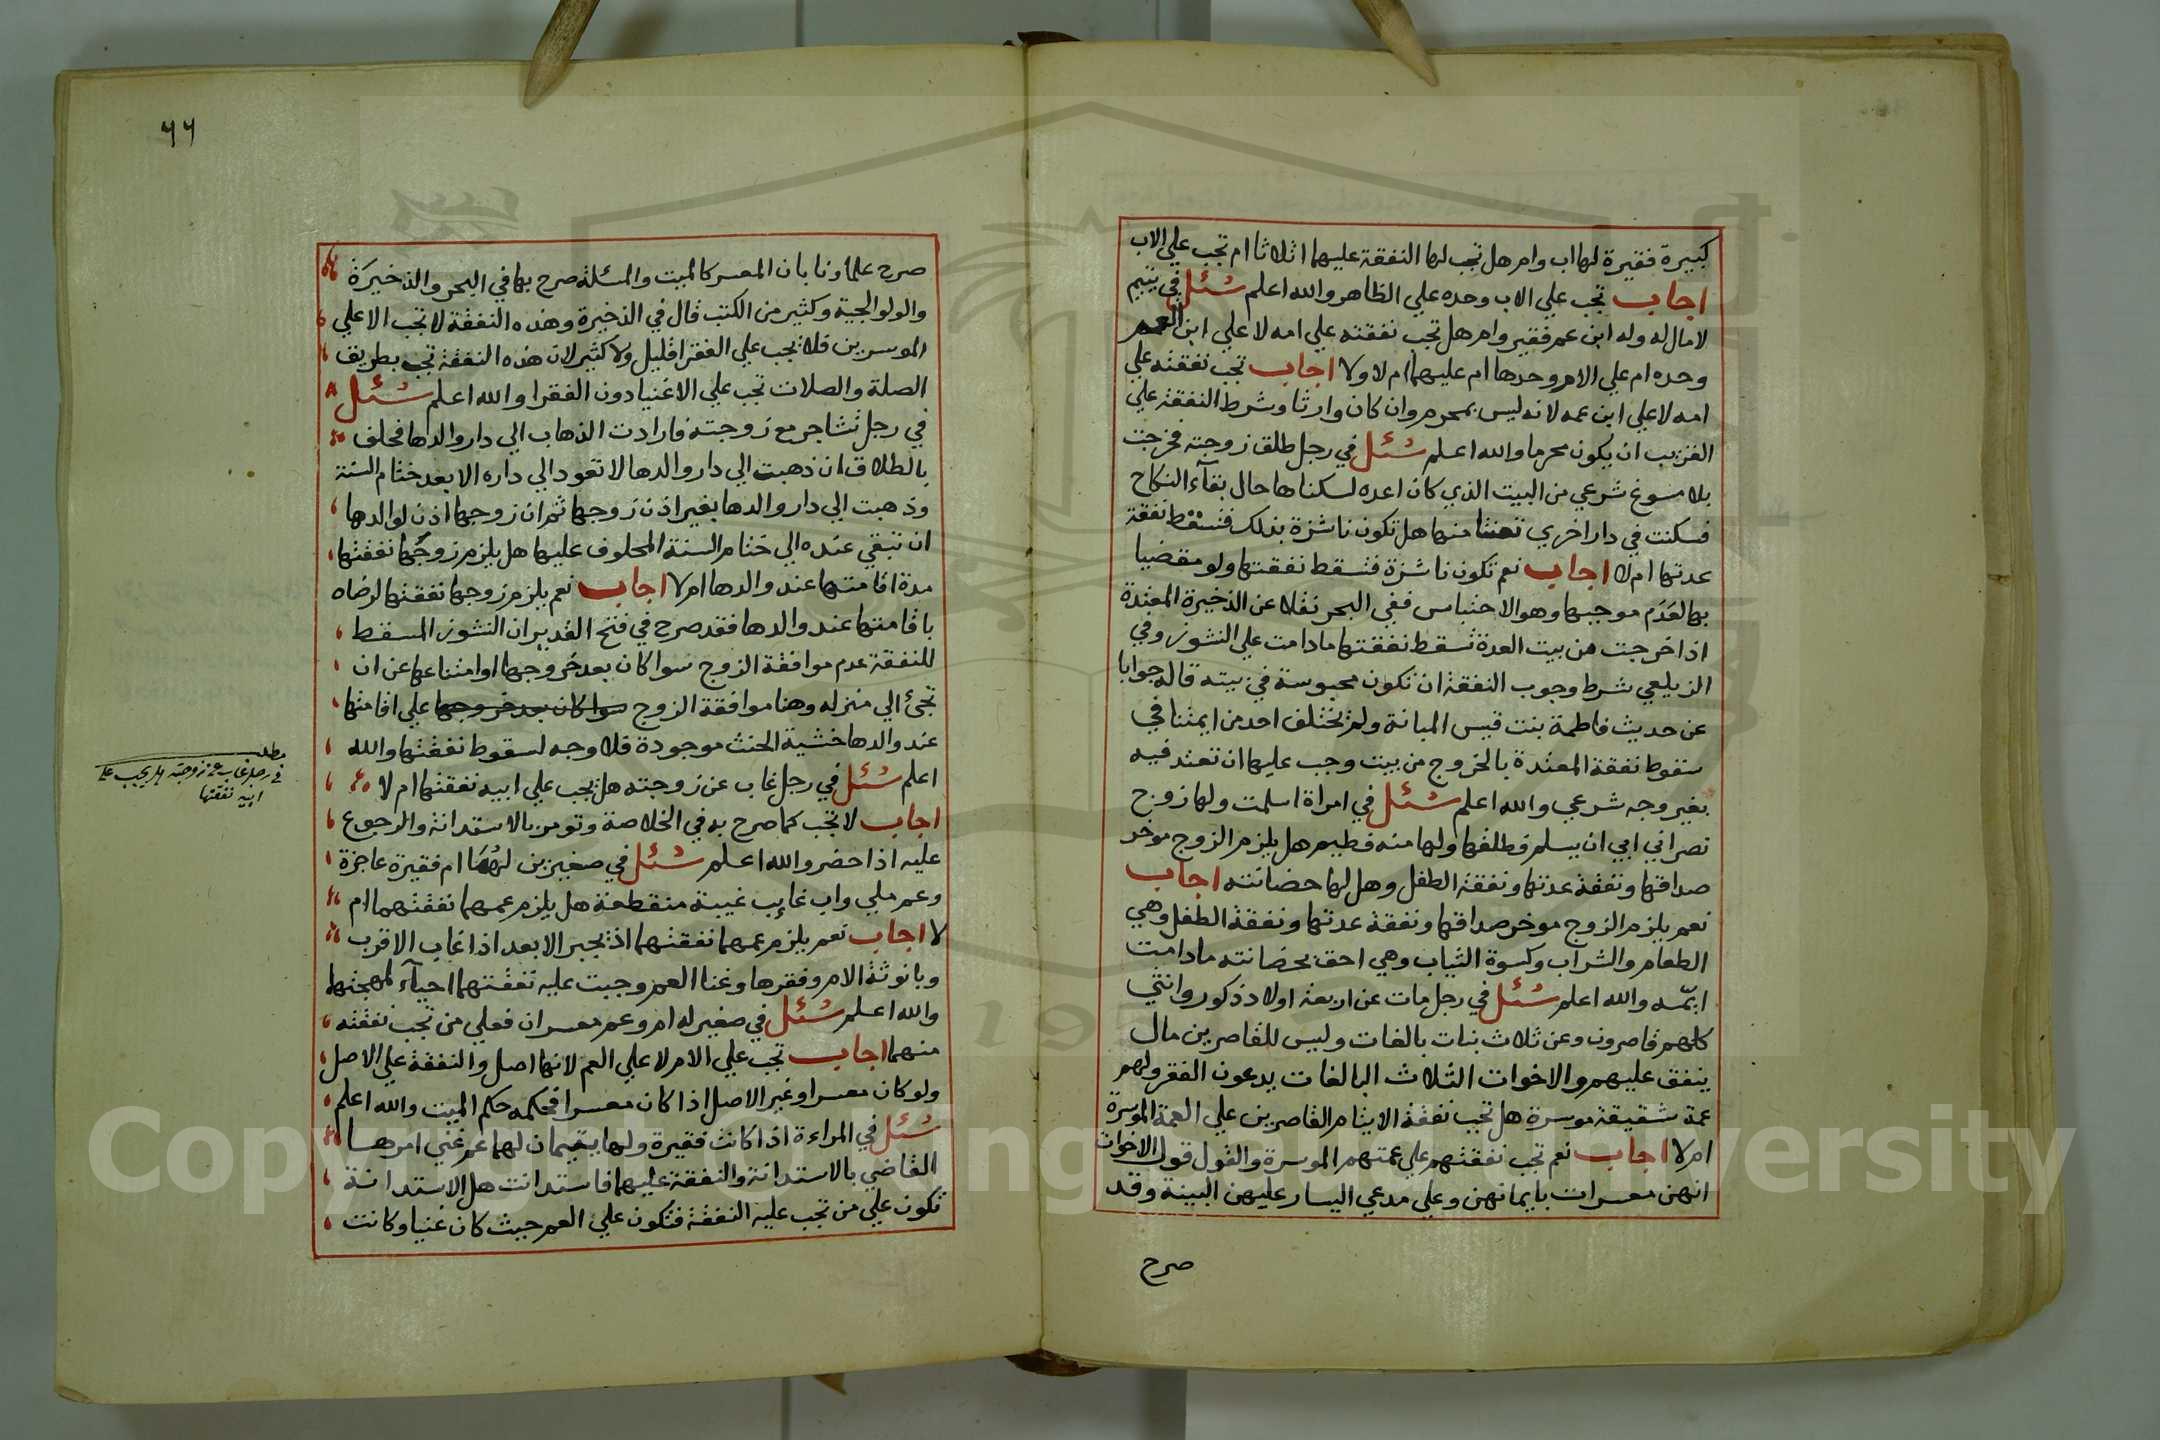 كبيرة فقيرة لها اب وام هل تجب لها النفقة عليهما اثلاثا ام تجب علي الاب
اجاب تجب علي الاب وحده علي الظاهر والله اعلم سُئل في يتيم
لا مال له وله ابن عم فقير وام هل تجب نفقته علي امه لا علي ابن العم
وحده ام علي الام وحدها ام عليهما ام لا ولا اجاب تجب نفقته علي
امه لا علي ابن عمه لانه ليس بمحرم وان كان وارثا وشرط النفقة علي
القريب ان يكون محرما والله اعلم سُئل في رجل طلق زوجته فخرجت
بلا مسوغ شرعي من البيت الذي كان اعده لسكناها حال بقآء النكاح
فسكنت في دار اخري تعنتا منها هل تكون ناشزة بذلك فتسقط نفقة
عدتها ام لا اجاب نعم تكون ناشزة فتسقط نفقتها ولو مقضيا
بها لعَدَم موجبها وهو الاحتباس ففي البحر نقلا عن الذخيرة المعتدة
اذا خرجت من بيت العدة تسقط نفقتها ما دامت علي النشوز وفي
الزيلعي شرط وجوب النفقة ان تكون محبوسة في بيته قاله جوابا
عن حديث فاطمة بنت قيس المبانة ولم يختلف احد من ايمتنا في
سقوط نفقة المعتدة بالخروج من بيت وجب عليها ان تعتد فيه
بغير وجه شرعي والله اعلم سُئل في امراة اسلمت ولها زوج
نصراني ابي ان يسلم فطلقها ولها منه فطيم هل يلزم الزوج موخر
صداقها ونفقة عدتها ونفقة الطفل وهل لها حضانته اجاب
نعم يلزم الزوج موخر صداقها ونفقة عدتها ونفقة الطفل وهي
الطعام والشراب وكسوة الثياب وهي احق بحضانته ما دامت
ايمّه والله اعلم سُئل في رجل مات عن اربعة اولاد ذكور وانثي
كلهم قاصرون وعن ثلاث بنات بالغات وليس للقاصرين مال
ينفق عليهم والاخوات الثلاث البالغات يدعون الفقر ولهم
عمة شقيقة موسرة هل تجب نفقة الايتام القاصرين علي العمة الموسرة
ام لا اجاب نعم تجب نفقتهم علي عمتهم الموسرة والقول قول الاخوات
انهن معسرات بايمانهن وعلي مدعي اليسار عليهن البينة وقد
صرح
٦٦
صرح علماونا بان المعسر كالميت والمسئلة صرح بها في البحر والذخيرة
والولوالجية وكثير من الكتب قال في الذخيرة وهذه النفقة لا تجب الا علي
الموسرين فلا تجب علي الفقرا قليل ولا كثير لان هذه النفقة تجب بطريق
الصلة والصلات تجب علي الاغنيا دون الفقرا والله اعلم سُئل
في رجل تشاجر مع زوجته فارادت الذهاب الي دار والدها فحلف
بالطلاق ان ذهبت الي دار والدها لا تعود الي داره الا بعد ختام السنة
وذهبت الي دار والدها بغير اذن زوجها ثم ان زوجها اذن لوالدها
ان تبقي عنده الي ختام السنة المحلوف عليها هل يلزم زوجها نفقتها
مدة اقامتها عند والدها ام لا اجاب نعم يلزم زوجها نفقتها لرضاه
باقامتها عند والدها فقد صرح في فتح القدير ان النشوز المسقط
للنفقة عدم موافقة الزوج سوا كان بعد خروجها او امتناعها عن ان
تجئ الي منزله وهنا موافقة الزوج سوا كان بعد خروجها علي اقامتها
عند والدها خشية الحنث موجودة فلا وجه لسقوط نفقتها والله
اعلم سُئل في رجل غاب عن زوجته هل يجب علي ابيه نفقتها ام لا
اجاب لا تجب كما صرح به في الخلاصة وتومر بالاستدانة والرجوع
عليه اذا حضر والله اعلم سُئل في صغيرين لهُمَا ام فقيرة عاجزة
وعم ملي واب غايب غيبة منقطعة هل يلزم عمهما نفقتهما ام
لا اجاب نعم يلزم عمهما نفقتهما اذ يجبر الابعد اذا غاب الاقرب
وبانوثة الام وفقرها وغنا العم وجبت عليه نفقتهما احيآء لمهجتهما
والله اعلم سُئل في صغير له ام وعم معسران فعلي من تجب نفقته
منهما اجاب تجب علي الام لا علي العم لانها اصل والنفقة علي الاصل
ولو كان معسرا وغير الاصل اذا كان معسرا فحكمه حكم الميت والله اعلم
سُئل في المراءة اذا كانت فقيرة ولها يتيمان لهما عم غني امرهـا
القاضي بالاستدانة والنفقة عليهما فاستدانت هل الاستدانة
تكون علي من تجب عليه النفقة فتكون علي العم حيث كان غنيا وكانت
مطلب
في رجل غاب عن زوجته هل يجب علي
ابيه نفقتها
Copyright © King Saud University
1957